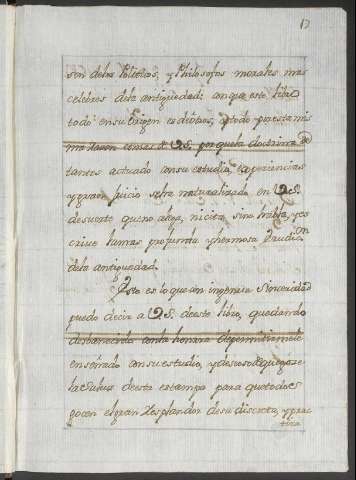 17
son delos Politicos, y Philosofos morales mas
celebres dela antiguedad: con que este libro
todo en su origen es de otros, y todo por esta mis
ma razon es mas de V.S. porque la doctrina de
tantos actuado con su estudio, experiencias
y gran juicio se ha naturalizado en V.S.
de suerte que no alega, ni cita, sino habla, y es
crive la mas profunda y hermosa erudicion
dela antiguedad.
Esto es lo que con ingenua sinceridad
puedo decir a V.S. de este libro, quedando
con la honra de
enseñado con su estudio, y deseoso de que goze
la luz de esta estampa para que todos
gocen el gran resplandor de su discreta, y prac
tica